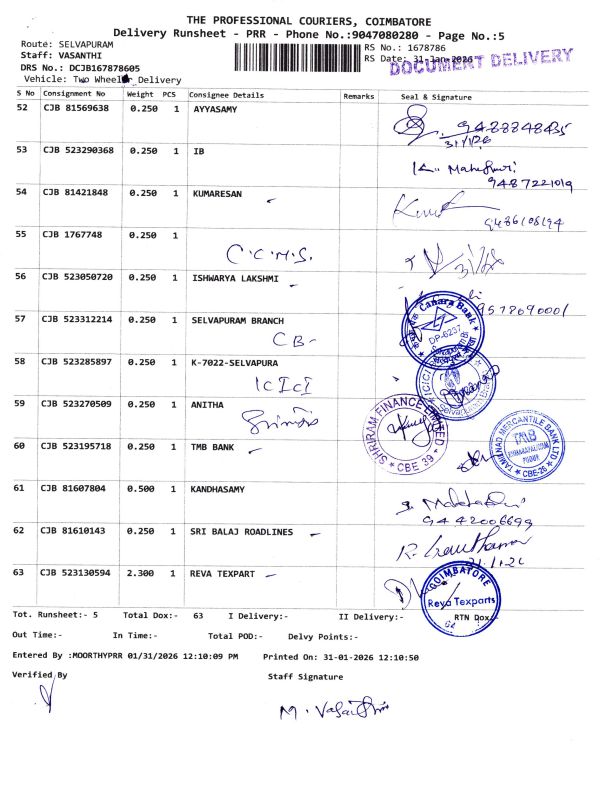 THE PROFESSIONAL COURIERS, COIMBATORE
Delivery Runsheet - PRR - Phone No.:9047080280 - Page No.:5
Route: SELVAPURAM
Staff: VASANTHI
DRS No.: DCJB167878605
Vehicle: Two Wheeler Delivery
RS No.: 1678786
RS Date: 31-Jan-2026
DOCUMENT DELIVERY
S No Consignment No Weight PCS Consignee Details Remarks Seal & Signature
52 CJB 81569638 0.250 1 AYYASAMY
9488848435
31/1/26
53 CJB 523290368 0.250 1 IB
9487221019
54 CJB 81421848 0.250 1 KUMARESAN
9486108194
55 CJB 1767748 0.250 1
C.C.M.S.
56 CJB 523050720 0.250 1 ISHWARYA LAKSHMI
Canara Bank
DP-6237
57 CJB 523312214 0.250 1 SELVAPURAM BRANCH
CB-
58 CJB 523285897 0.250 1 K-7022-SELVAPURA
ICICI
ICICI
59 CJB 523270509 0.250 1 ANITHA
SHRIRAM FINANCE LIMITED
CBE 39
60 CJB 523195718 0.250 1 TMB BANK
TAMILNAD MERCANTILE BANK LTD
TMB
CBE-26
61 CJB 81607804 0.500 1 KANDHASAMY
9442006699
62 CJB 81610143 0.250 1 SRI BALAJ ROADLINES
R. Gowthaman
63 CJB 523130594 2.300 1 REVA TEXPART
COIMBATORE
Reva Texparts
Tot. Runsheet:- 5 Total Dox:- 63 I Delivery:- II Delivery:- RTN Dox
Out Time:- In Time:- Total POD:- Delvy Points:-
Entered By :MOORTHYPRR 01/31/2026 12:10:09 PM Printed On: 31-01-2026 12:10:50
Verified By Staff Signature